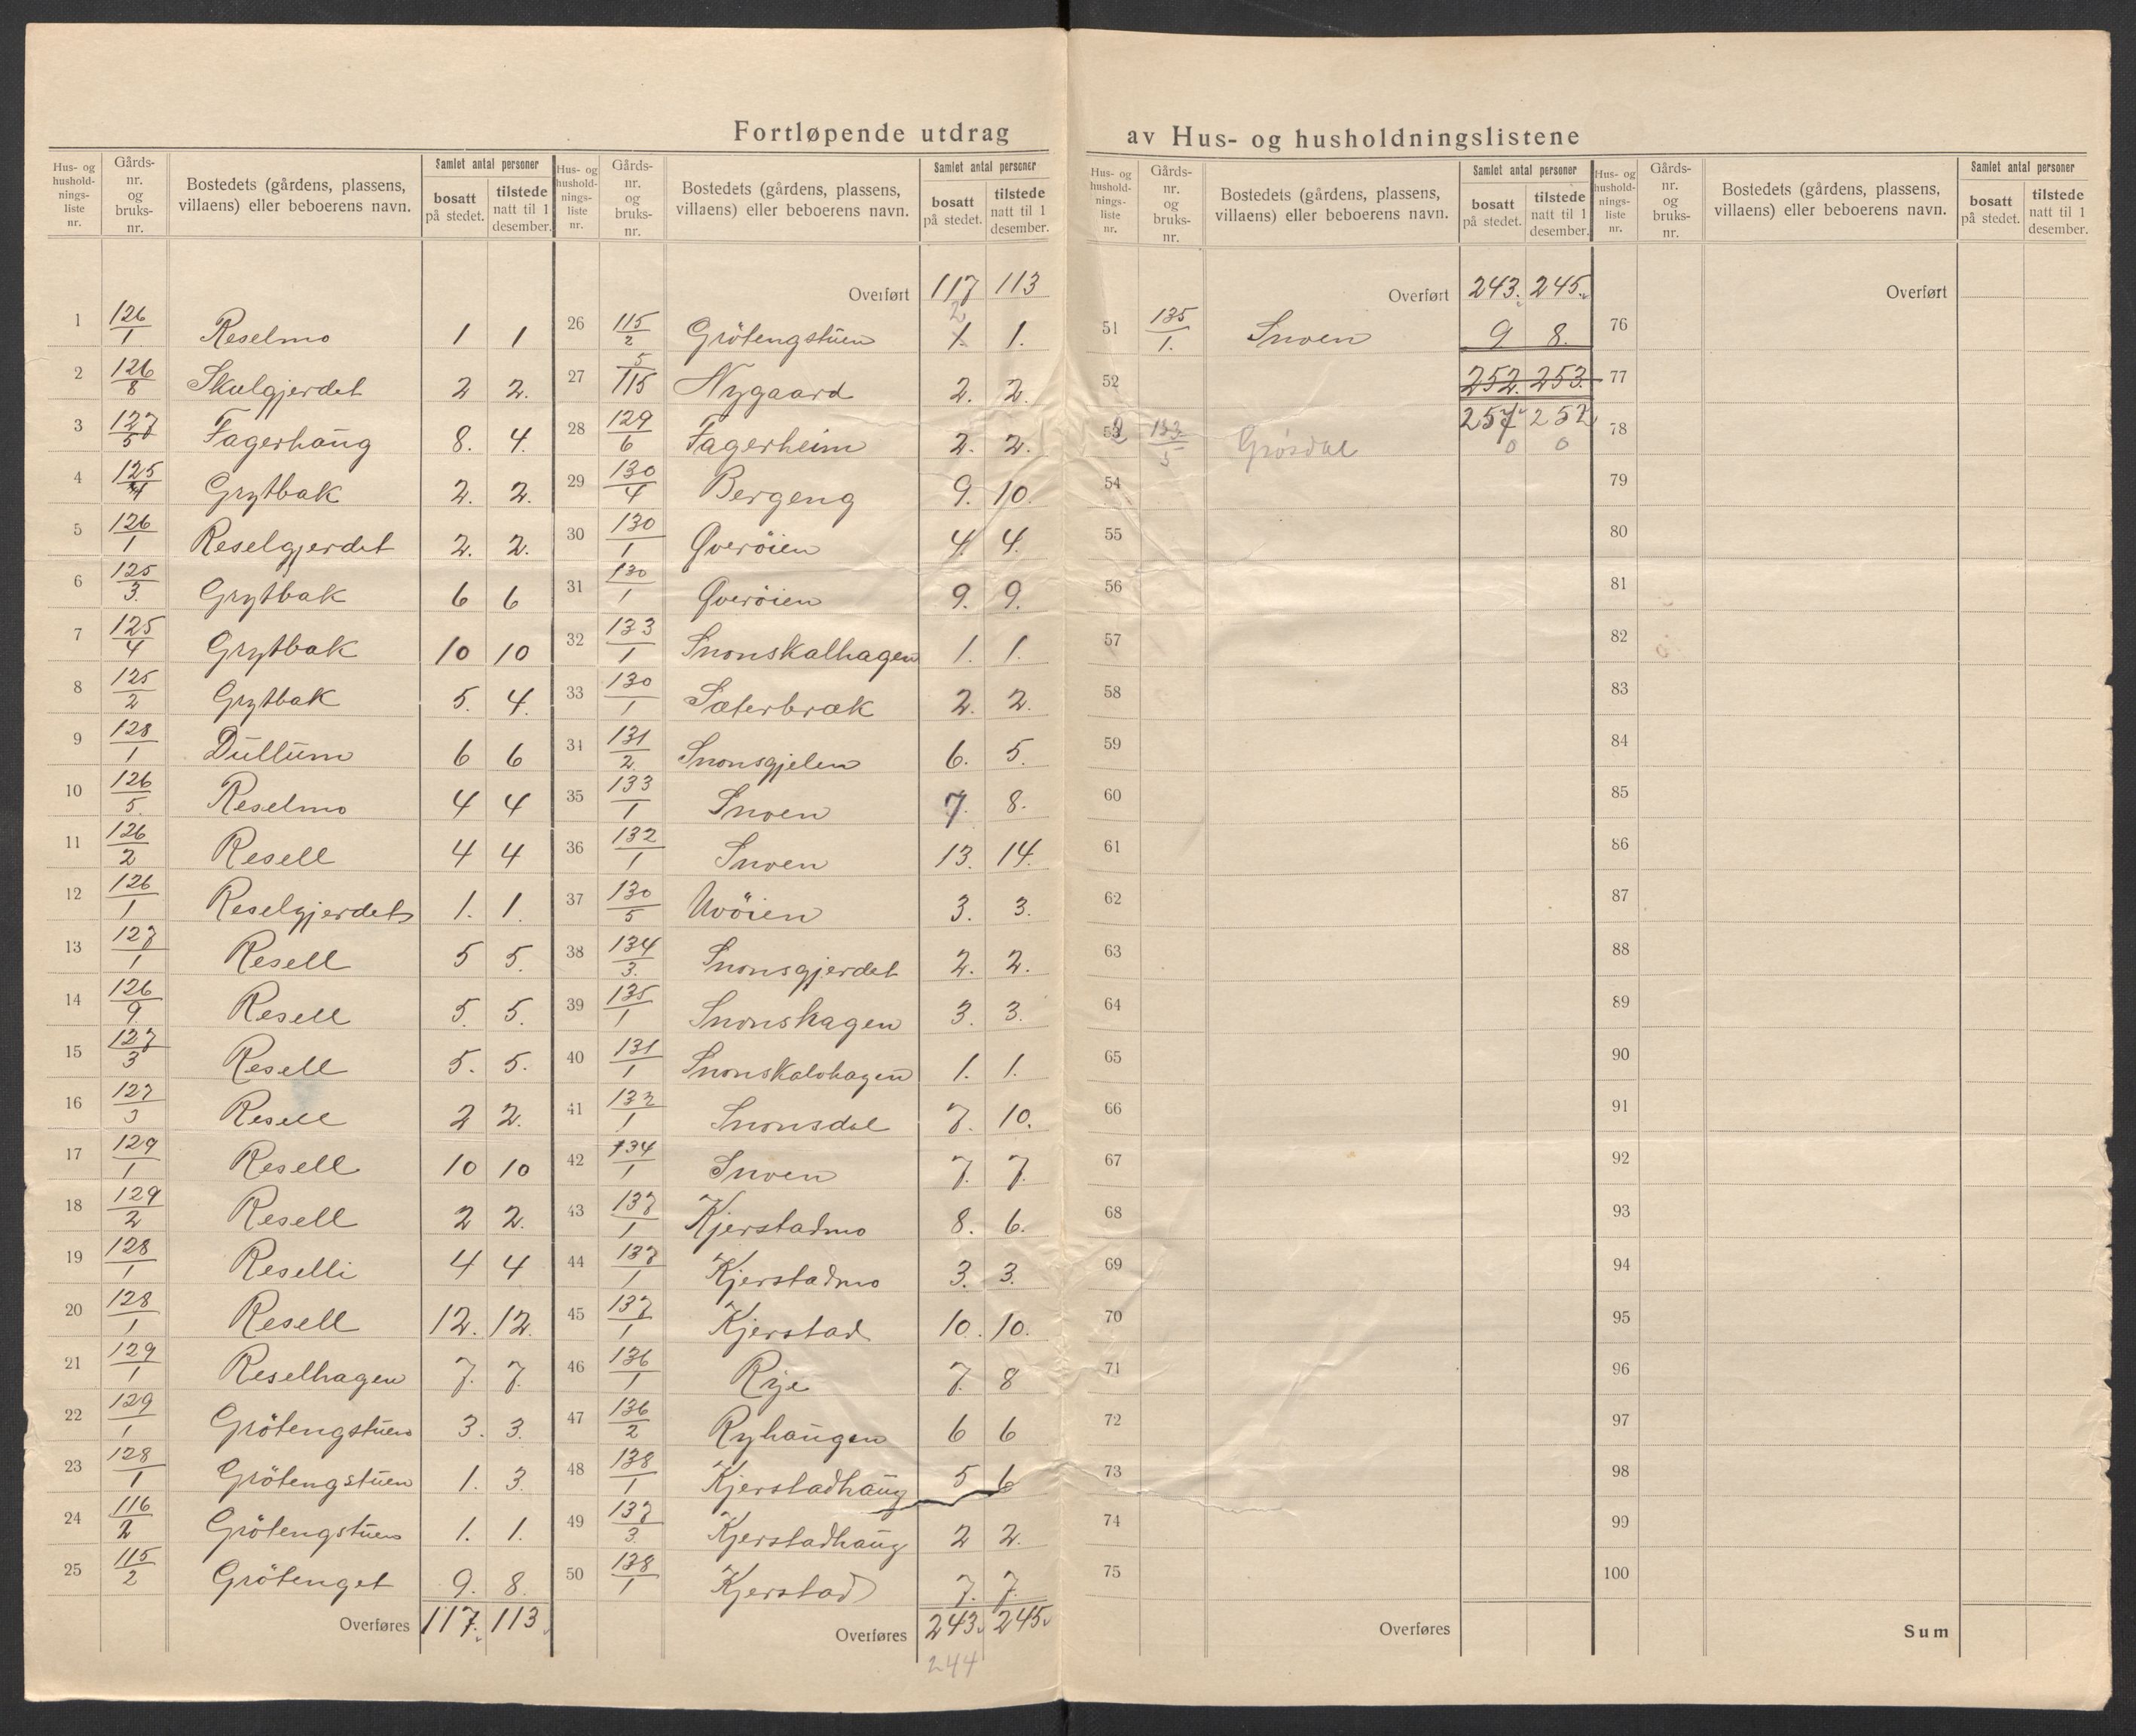 Fortløpende utdrag av Hus- og husholdningslistene
Hus- og hushold-nings-liste nr. Gårds-nr. og bruks-nr. Bostedets (gårdens, plassens, villaens) eller beboerens navn. Samlet antal personer bosatt på stedet. tilstede natt til 1 desember.
1 126/1 Reselmo 1 1
2 126/8 Skulgjerdet 2 2.
3 127/5 Fagerhaug 8. 4.
4 125/4 Grytbak 2. 2.
5 126/1 Reselgjerdet 2. 2.
6 125/3. Grytbak 6 6
7 125/4 Grytbak 10 10
8 125/2 Grytbak 5. 4.
9 128/1 Dullum 6 6
10 126/5. Reselmo 4 4
11 126/2 Resell 4 4
12 126/1 Reselgjerdet 1. 1.
13 127/1 Resell 5 5.
14 126/9. Resell 5. 5.
15 127/3 Resell 5. 5.
16 127/3 Resell 2 2.
17 129/1 Resell 10 10
18 129/2 Resell 2 2.
19 128/1 Reselli 4 4
20 128/1 Resell 12. 12.
21 129/1 Reselhagen 7. 7.
22 129/1 Grötengstuen 3. 3.
23 128/1 Grötengstuen 1. 3.
24 116/2 Grötengstuen 1. 1.
25 115/2 Grötenget 9. 8.
Overføres 117. 113.
Hus- og hushold-nings-liste nr. Gårds-nr. og bruks-nr. Bostedets (gårdens, plassens, villaens) eller beboerens navn. Samlet antal personer bosatt på stedet. tilstede natt til 1 desember.
Overført 117 113
2
26 115/2 Grötengstuen 1. 1.
27 5/115 Nygaard 2. 2.
28 129/6 Fagerheim 2. 2.
29 130/4 Bergeng 9. 10.
30 130/1 Qveröien 4. 4.
31 130/1 Qveröien 9. 9.
32 133/1 Snonskalhagen 1. 1.
33 130/1 Sæterbræk 2. 2.
34 131/2. Snonsgjelen 6. 5.
35 133/1 Snoen 7. 8.
36 132/1 Snoen 13. 14.
37 130/5 Uvöien 3. 3.
38 134/3. Snonsgjerdet 2. 2.
39 135/1 Snonshagen 3. 3.
40 131/1 Snonskalvhagen 1. 1.
41 132/1 Snonsdal 7. 10.
42 134/1 Snoen 7. 7.
43 137/1 Kjerstadmo 8. 6.
44 137/1 Kjerstadmo 3. 3.
45 137/1 Kjerstad 10. 10.
46 136/1 Rye 7. 8
47 136/2 Ryhaugen 6 6
48 138/1 Kjerstadhaug 5 6
49 137/3. Kjerstadhaug 2 2.
50 138/1 Kjerstad 7. 7.
Overføres 243. 245.
244
Hus- og hushold-nings-liste nr. Gårds-nr. og bruks-nr. Bostedets (gårdens, plassens, villaens) eller beboerens navn. Samlet antal personer bosatt på stedet. tilstede natt til 1 desember.
Overført 243. 245.
51 135/1. Snoen 9 8.
52 252. 253.
257 252
53 2 133/5 Grösdal 0 0
54
55
56
57
58
59
60
61
62
63
64
65
66
67
68
69
70
71
72
73
74
75
Overføres
Hus- og hushold-nings-liste nr. Gårds-nr. og bruks-nr. Bostedets (gårdens, plassens, villaens) eller beboerens navn. Samlet antal personer bosatt på stedet. tilstede natt til 1 desember.
Overført
76
77
78
79
80
81
82
83
84
85
86
87
88
89
90
91
92
93
94
95
96
97
98
99
100
Sum